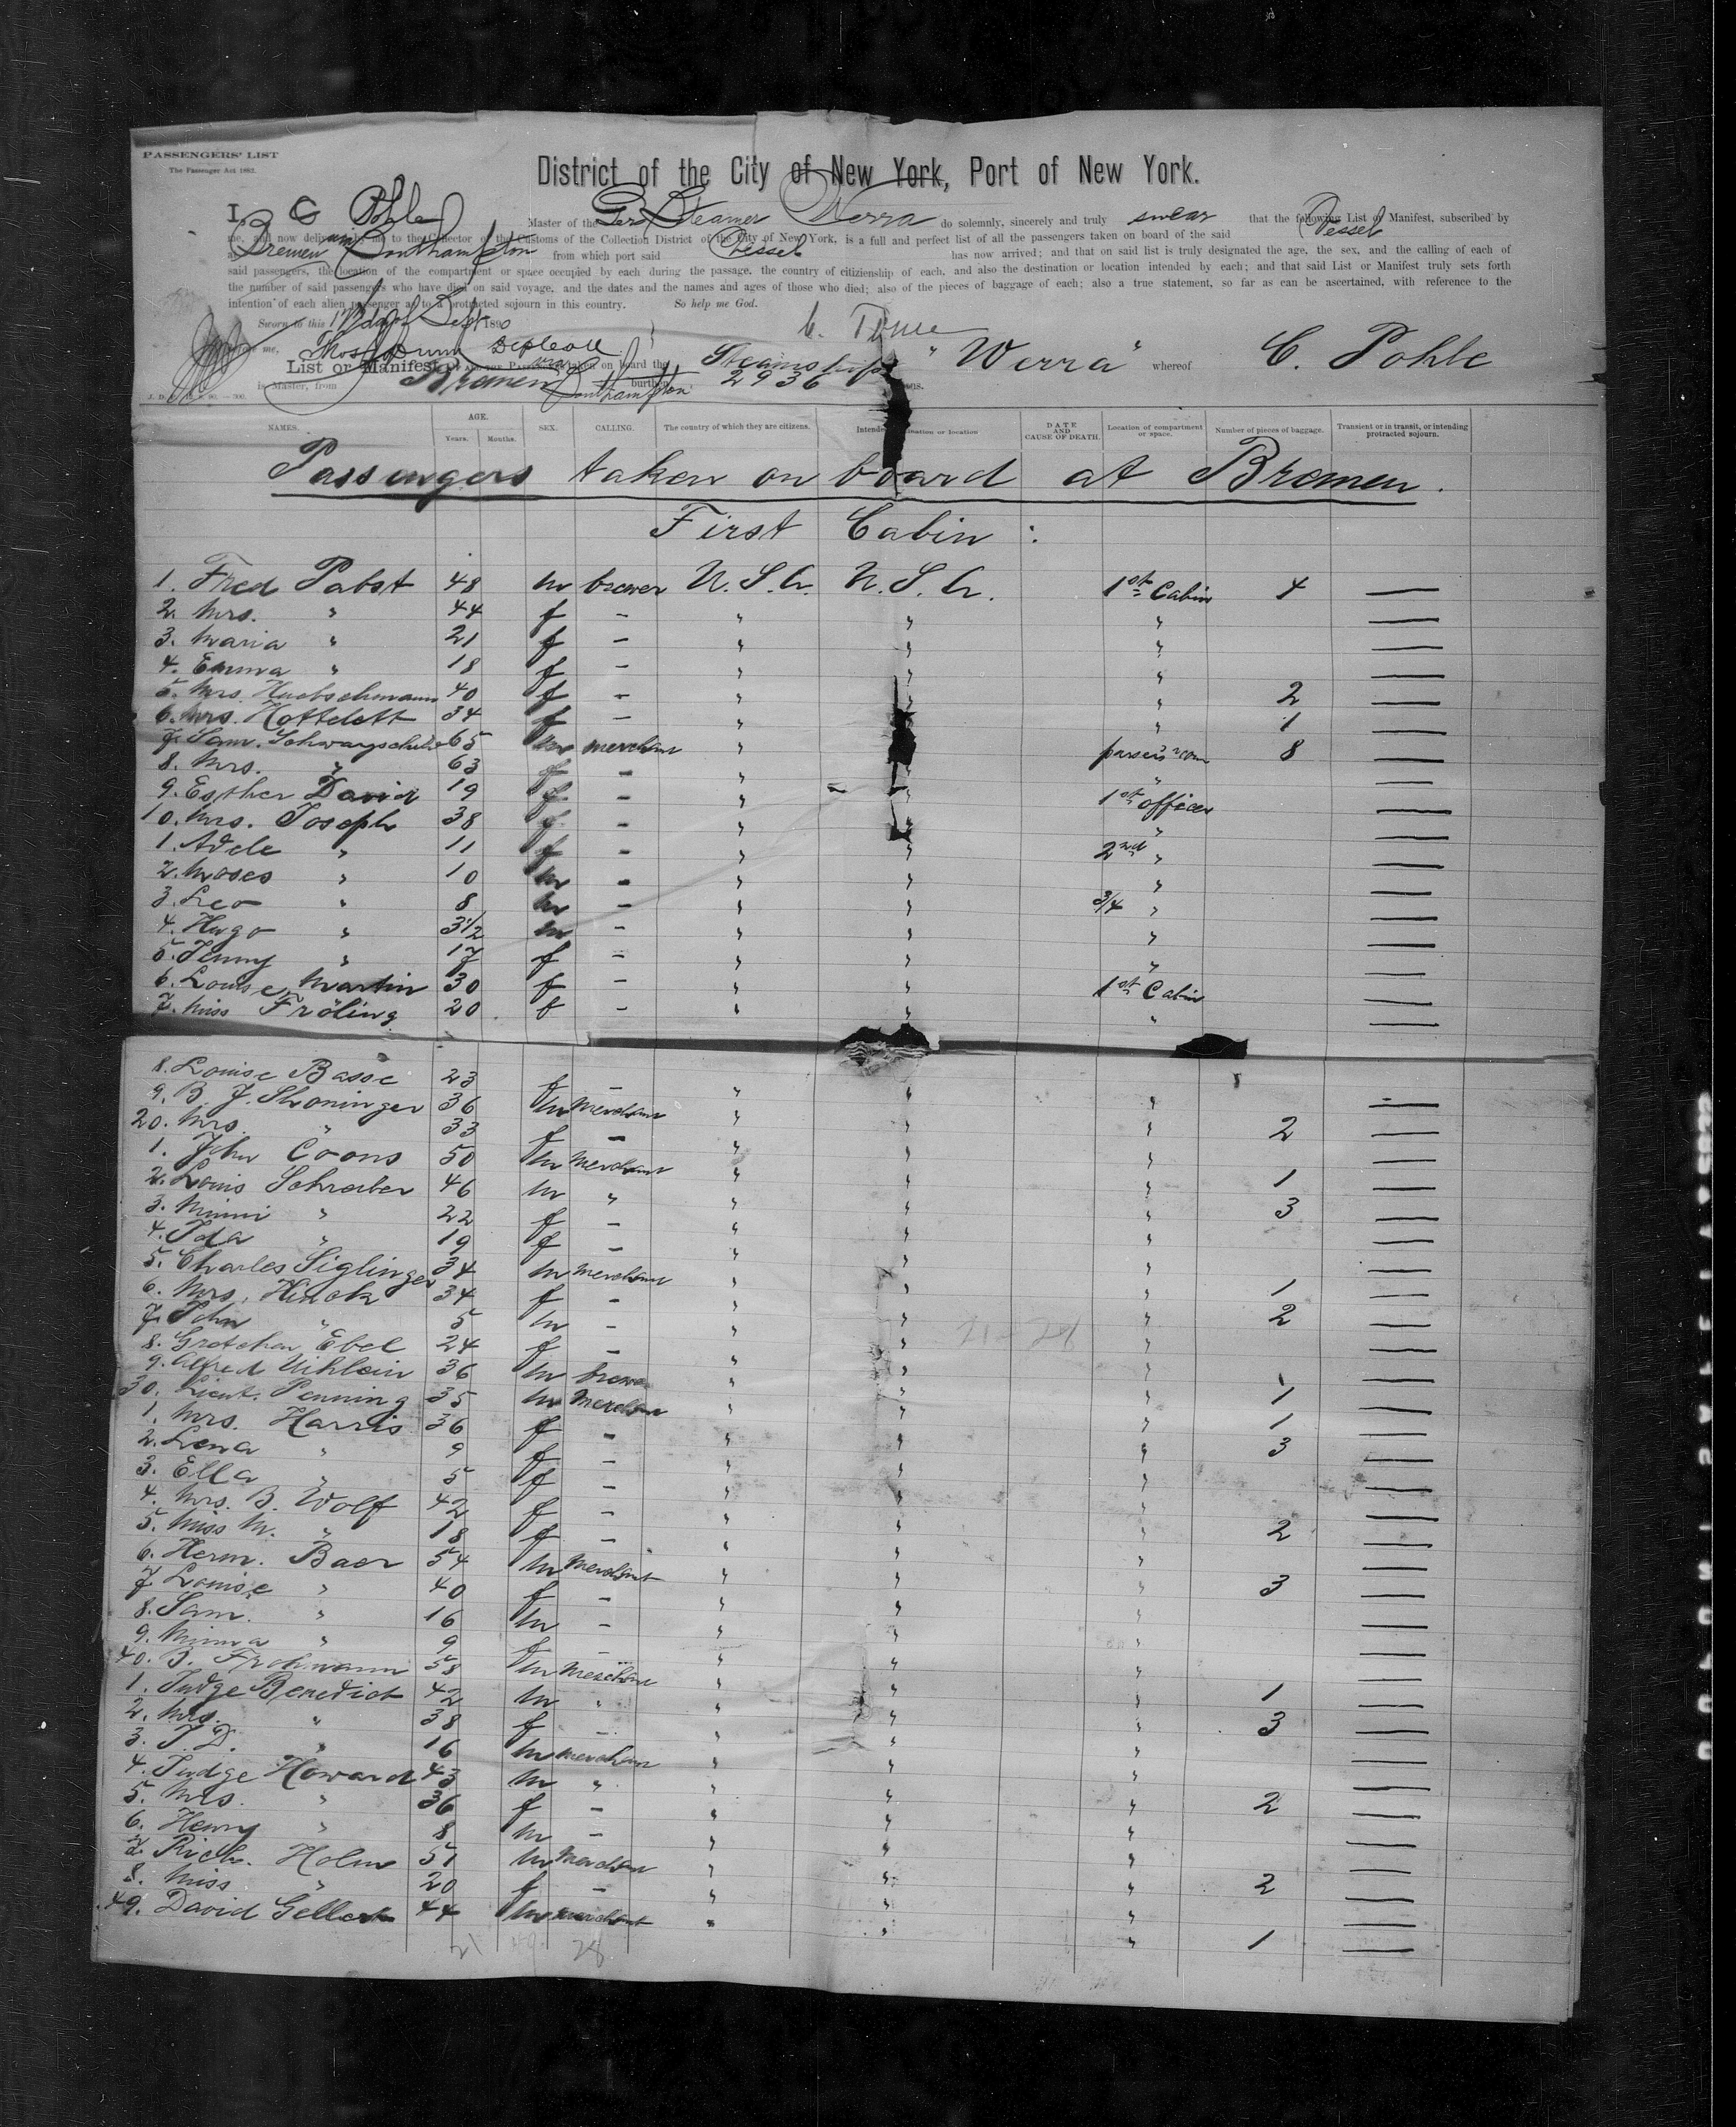 PASSENGERS' LIST
The Passenger Act 1882.
District of the City of New York, Port of New York.
I, C Pohle Master of the Ger Steamer Werra do solemnly, sincerely and truly swear that the following List of Manifest, subscribed by
me, and now delivered by me to the Collector of the Customs of the Collection District of the City of New York, is a full and perfect list of all the passengers taken on board of the said Vessel
at Bremen and Southampton from which port said Vessel has now arrived; and that on said list is truly designated the age, the sex, and the calling of each of
said passengers, the location of the compartment or space occupied by each during the passage, the country of citizienship of each, and also the destination or location intended by each; and that said List or Manifest truly sets forth
the number of said passengers who have died on said voyage, and the dates and the names and ages of those who died; also of the pieces of baggage of each; also a true statement, so far as can be ascertained, with reference to the
intention of each alien passenger as to a protracted sojourn in this country. So help me God.
Sworn to this day of Sept 1890
me,
List or Manifest OF ALL THE PASSENGERS taken on board the Steamship "Werra" whereof C. Pohle
is Master, from Bremen and Southampton burthen 2936 tons.
NAMES. AGE. Years. Months. SEX. CALLING. The country of which they are citizens. Intended destination or location DATE AND CAUSE OF DEATH. Location of compartment or space. Number of pieces of baggage. Transient or in transit, or intending protracted sojourn.
Passengers taken on board at Bremen.
First Cabin:
1. Fred Pabst 48 m brewer U.S.A. U.S.A. 1st Cabin 4 —
2. Mrs. " 44 f — " " " —
3. Maria " 21 f — " " " —
4. Emma " 18 f — " " " —
5. Mrs. Huebschmann 40 f — " " " 2 —
6. Mrs. Hottelett 34 f — " " " 1 —
7. Sam. Schwarzschild 65 m merchant " " 8 —
8. Mrs. " 63 f — " " " —
9. Esther David 19 f — " " 1st officer —
10. Mrs. Joseph 38 f — " " " —
1. Adele " 11 f — " " 2nd " —
2. Moses " 10 m — " " " —
3. Leo " 8 m — " " 3/4 " —
4. Hugo " 3 1/2 m — " " " —
5. Jenny " f — " " " —
6. Louise Martin 30 f — " " 1st Cabin —
7. Miss Fröling 20 f — " " " —
8. Louise Basse 23 f — " " " —
9. B. J. Shoninger 36 m merchant " " " 2 —
20. Mrs. " 33 f — " " " —
1. John Coons 50 m merchant " " " 1 —
2. Louis Schreiber 46 m " " " " 3 —
3. Minni " 22 f — " " " —
4. Ida " 19 f — " " " —
5. Charles Siglinger 34 m merchant " " " 1 —
6. Mrs. Hinck 34 f — " " " 2 —
7. John " 5 m — " " " —
8. Gretchen Ebel 24 f — " " " —
9. Alfred Uihlein 36 m brewer " " " 1 —
30. Lieut. Penning 35 m merchant " " " 1 —
1. Mrs. Harris 36 f — " " " 3 —
2. Lena " 9 f — " " " —
3. Ella " 5 f — " " " —
4. Mrs. B. Wolf 42 f — " " " 2 —
5. Miss M. " 18 f — " " " —
6. Herm. Baer 54 m merchant " " " 3 —
7. Louise " 40 f — " " " —
8. Sam. " 16 m — " " " —
9. Minna " 9 f — " " " —
40. B. Frohmann 58 m merchant " " " 1 —
1. Judge Benedict 42 m " " " " 3 —
2. Mrs. " 38 f — " " " —
3. J. D. " 16 m merchant " " " —
4. Judge Howard 43 m " " " " 2 —
5. Mrs. " 36 f — " " " —
6. Henry " 8 m — " " " —
7. Rich. Holm 51 m merchant " " " 2 —
8. Miss " 20 f — " " " —
49. David Gellert 44 m merchant " " " 1 —
21 49 28